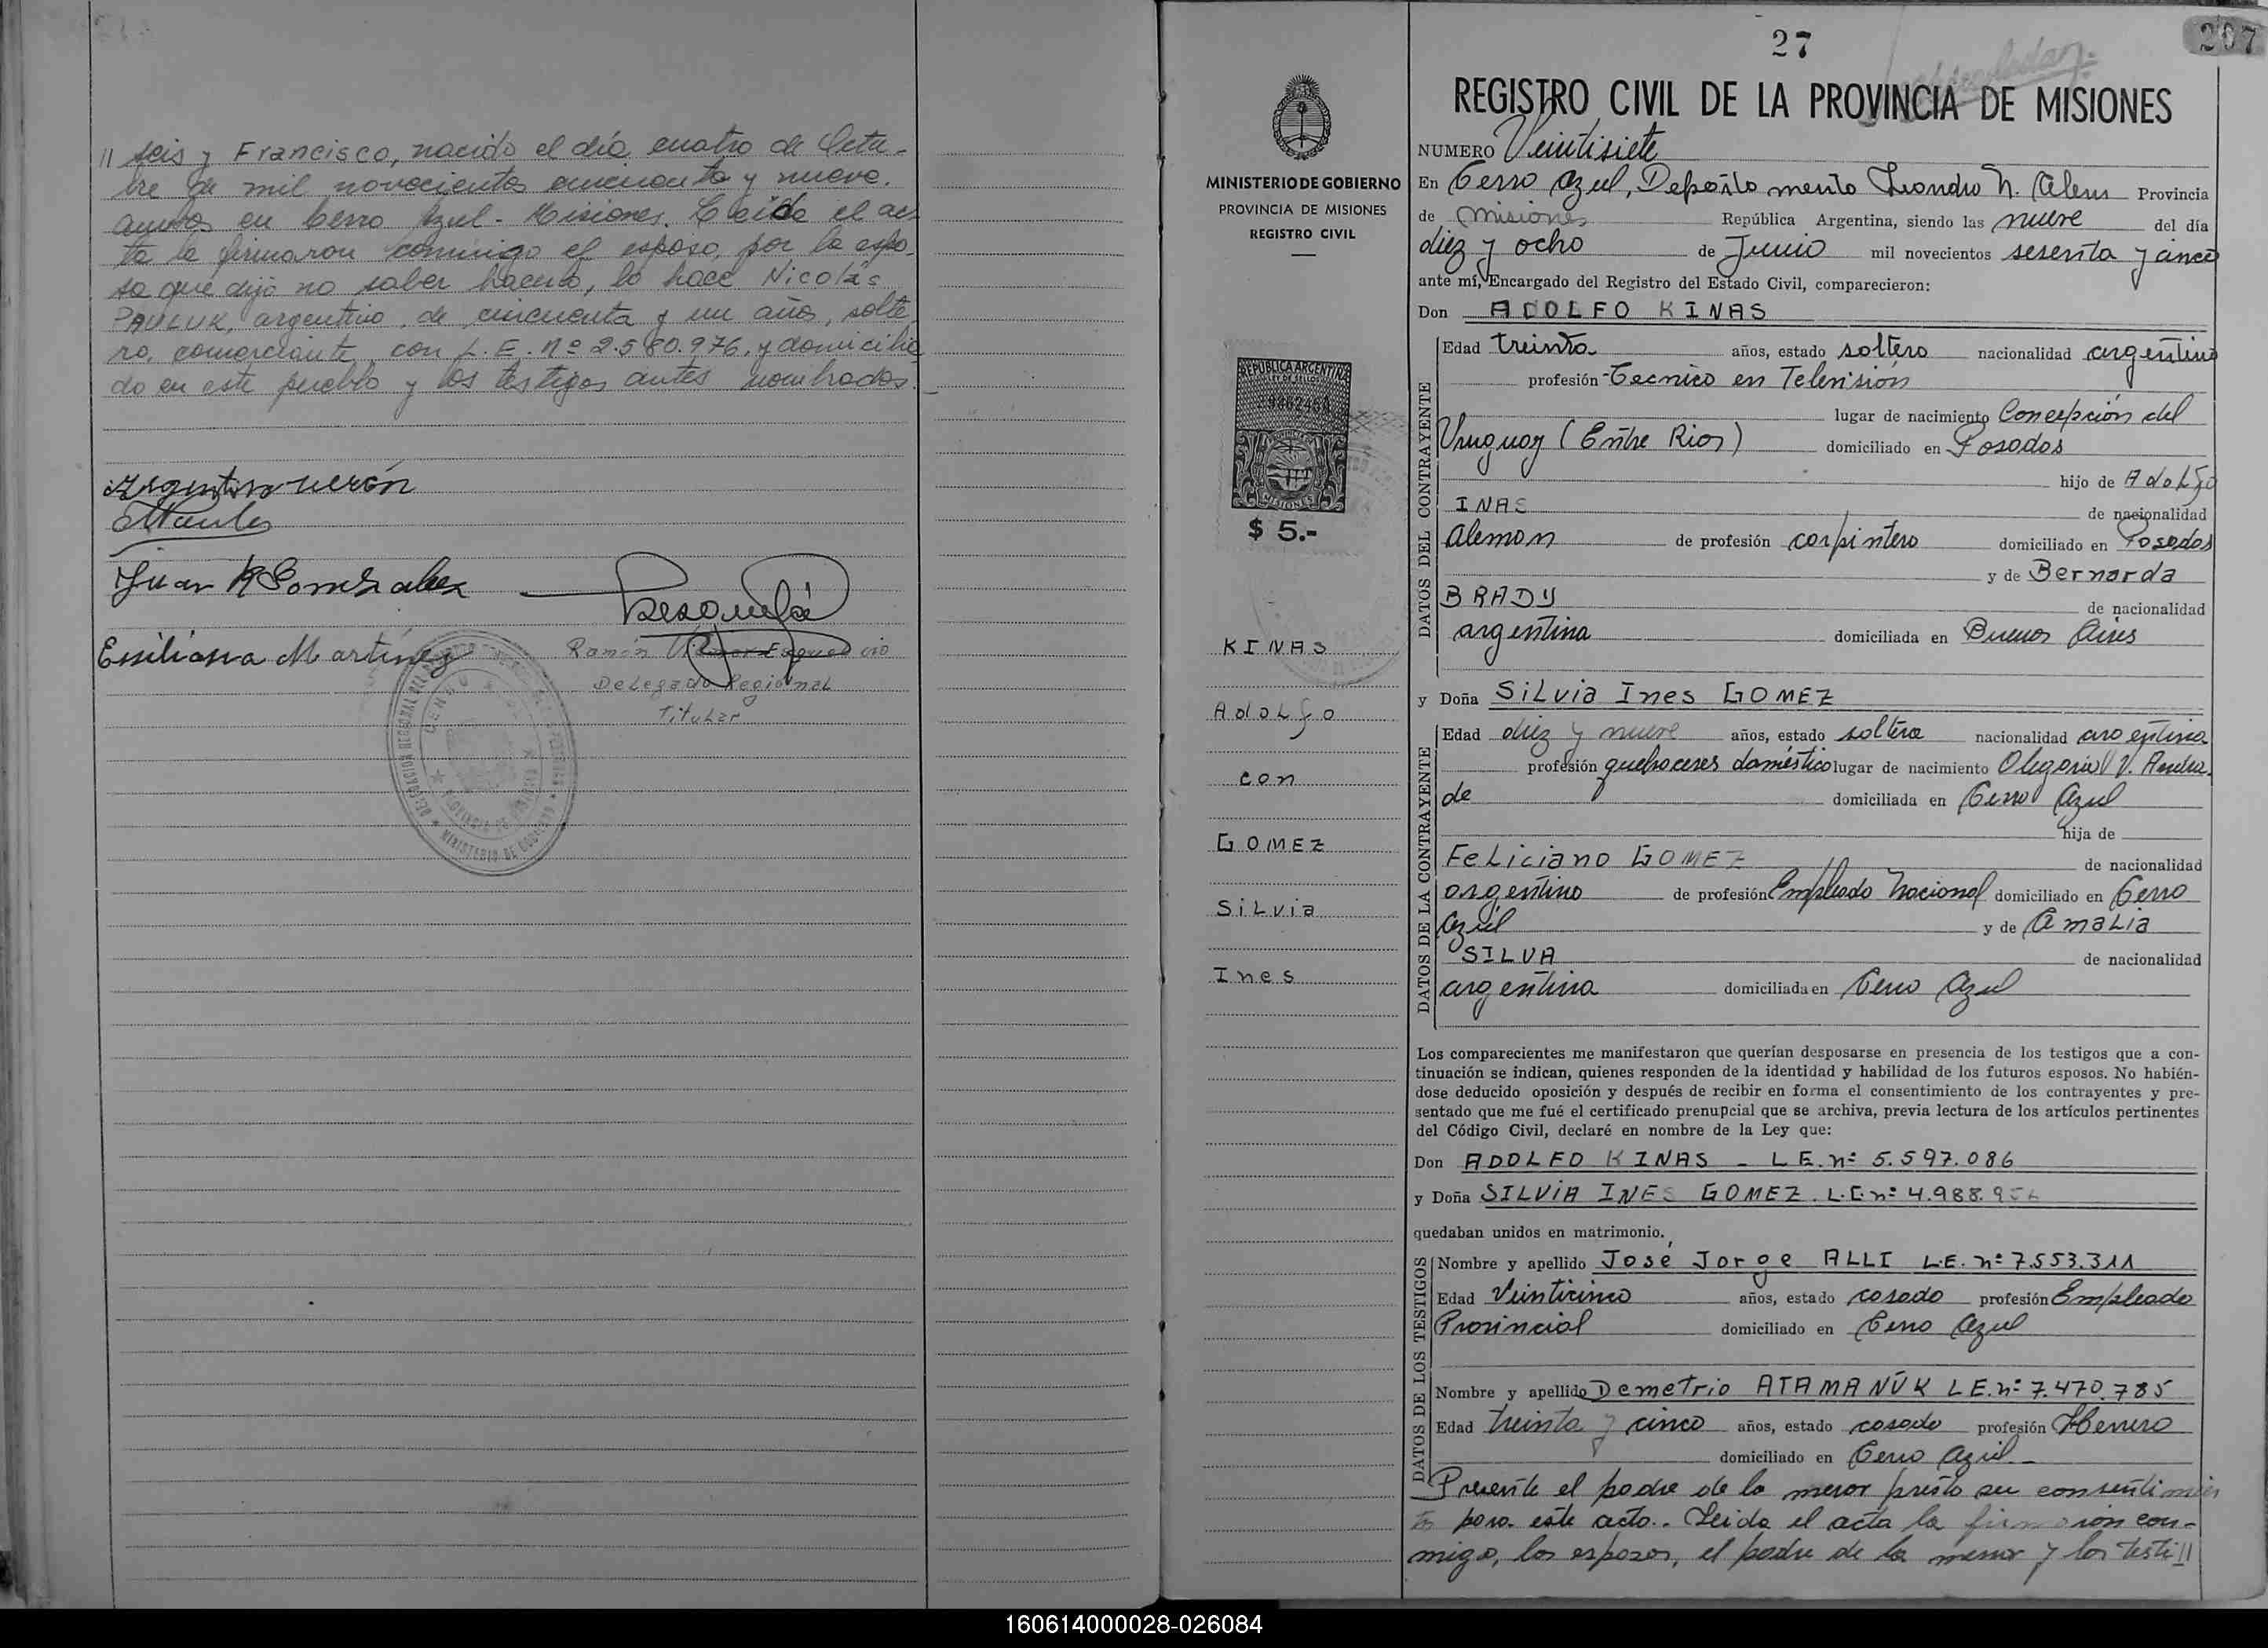 // seis y Francisco, nacido el día cuatro de Octu-
bre de mil novecientos cincuenta y nueve.
ambos en Cerro Azul - Misiones. Leída el ac-
ta la firmaron conmigo el esposo, por la espo-
sa que dijo no saber hacerlo, lo hace Nicolás
PAULUK, argentino, de cincuenta y un años, solte-
ro, comerciante, con L.E. Nº 2.580.976, y domicilia
do en este pueblo y los testigos antes nombrados.
Juan R Gomzalez
Emiliana Martinez
Ramón
Delegado Regional
Titular
27
207
REGISTRO CIVIL DE LA PROVINCIA DE MISIONES
MINISTERIO DE GOBIERNO
PROVINCIA DE MISIONES
REGISTRO CIVIL
REPUBLICA ARGENTINA
LEY DE SELLOS
MISIONES
$ 5.-
KINAS
Adolfo
con
GOMEZ
Silvia
Ines
NUMERO Veintisiete
En Cerro Azul, Departamento Leandro N. Alem Provincia
de Misiones República Argentina, siendo las nueve del día
diez y ocho de Junio mil novecientos sesenta y cinco
ante mí, Encargado del Registro del Estado Civil, comparecieron:
Don ADOLFO KINAS
DATOS DEL CONTRAYENTE
Edad treinta años, estado soltero nacionalidad argentino
profesión Tecnico en Television
lugar de nacimiento Concepción del
Uruguay (Entre Rios) domiciliado en Posadas
hijo de Adolfo
INAS de nacionalidad
aleman de profesión carpintero domiciliado en Posadas
y de Bernarda
BRADY de nacionalidad
argentina domiciliada en Buenos Aires
y Doña Silvia Ines GOMEZ
DATOS DE LA CONTRAYENTE
Edad diez y nueve años, estado soltera nacionalidad argentina
profesión quehaceres doméstico lugar de nacimiento Olegario V. Andra-
de domiciliada en Cerro Azul
hija de
Feliciano GOMEZ de nacionalidad
argentino de profesión Empleado Nacional domiciliado en Cerro
Azul y de Amalia
SILVA de nacionalidad
argentina domiciliada en Cerro Azul
Los comparecientes me manifestaron que querían desposarse en presencia de los testigos que a con-
tinuación se indican, quienes responden de la identidad y habilidad de los futuros esposos. No habién-
dose deducido oposición y después de recibir en forma el consentimiento de los contrayentes y pre-
sentado que me fué el certificado prenupcial que se archiva, previa lectura de los artículos pertinentes
del Código Civil, declaré en nombre de la Ley que:
Don ADOLFO KINAS - L E. nº 5.597.086
y Doña SILVIA INES GOMEZ. L.C. nº 4.988.
quedaban unidos en matrimonio.
DATOS DE LOS TESTIGOS
Nombre y apellido José Jorge ALLI L.E. nº 7.553.311
Edad Veinticinco años, estado casado profesión Empleado
Provincial domiciliado en Cerro Azul
Nombre y apellido Demetrio ATAMANUK L E. nº 7.470.785
Edad treinta y cinco años, estado casado profesión Herrero
domiciliado en Cerro Azul
Presente el padre de la menor prestó su consentimien
to para este acto.. Leida el acta la firmaron con-
migo, los esposos, el padre de la menor y los testi//
160614000028-026084